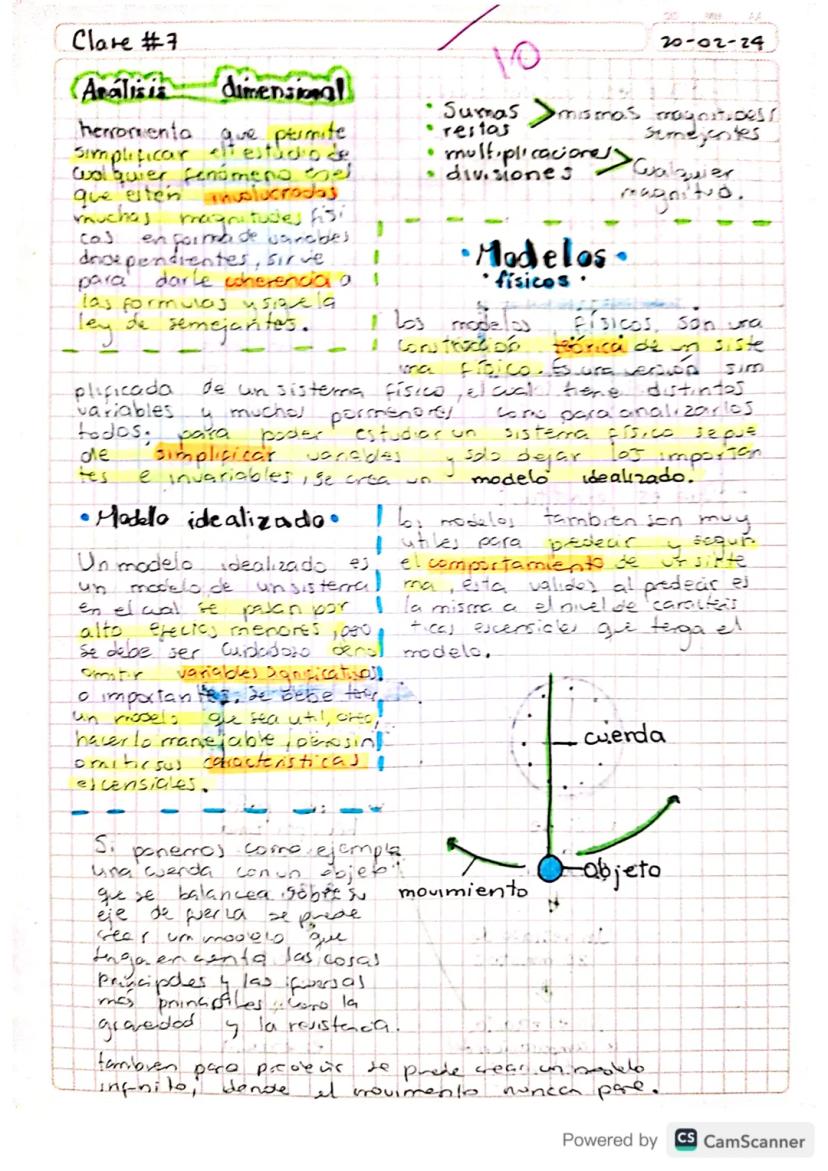 Clase #7
20-02-24
10
Análisis dimensional
herramienta que permite
simplificar el estudio de
cualquier fenómeno en el
que estén involucradas
muchas magnitudes físi
cas en forma de variables
independientes, sirve
para darle coherencia a
las formulas y sigue la
ley de semejantes.
• Sumas > mismas magnitudes/
• restas semejantes
• multiplicaciones > Cualquier
• divisiones magnitud.
• Modelos •
• físicos •
Los modelos físicos, son una
construcción teórica de un siste
ma físico. Es una versión sim
plificada de un sistema físico, el cual tiene distintas
variables y muchos pormenores como para analizarlos
todos; para poder estudiar un sistema físico se pue
de simplificar variables y solo dejar las importan
tes e invariables, se crea un modelo idealizado.
• Modelo idealizado •
Un modelo idealizado es
un modelo de un sistema
en el cual se pasan por
alto efectos menores, pero
se debe ser cuidadoso de no
omitir variables significativas
o importantes, se debe
un modelo que sea util,
hacerlo manejable, pero sin
omitir sus características
escensiales.
los modelos tambien son muy
utiles para predecir y seguir
el comportamiento de un siste
ma, esta validez al predecir es
la misma a el nivel de caracteris
ticas escensiales que tenga el
modelo.
cuerda
objeto
movimiento
Si ponemos como ejemplo
una cuerda con un objeto
que se balancea sobre su
eje de fuerza se puede
crear un modelo que
tenga en cuenta las cosas
principales y las fuerzas
más principales como la
gravedad y la resistencia.
tambien para predecir se puede crear un modelo
infinito, donde el movimento nunca pare.
Powered by CS CamScanner